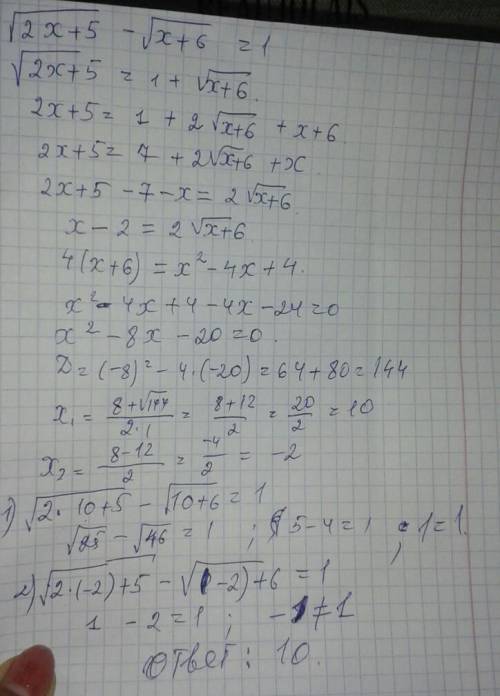 √(2x+5) - √(x+6) = 1
√(2x+5) = 1 + √(x+6).
2x+5 = 1 + 2√(x+6) + x+6.
2x+5 = 7 + 2√(x+6) + x.
2x+5 - 7 - x = 2√(x+6).
x - 2 = 2√(x+6).
4(x+6) = x² - 4x + 4.
x² - 4x + 4 - 4x - 24 = 0
x² - 8x - 20 = 0.
D = (-8)² - 4·(-20) = 64 + 80 = 144
x₁ = (8+√144)/(2·1) = (8+12)/2 = 20/2 = 10
x₂ = (8-12)/2 = -4/2 = -2
1) √(2·10+5) - √(10+6) = 1
√25 - √46 = 1 ; 5-4 = 1 ; 1 = 1.
2) √(2·(-2)+5) - √((-2)+6) = 1
1 - 2 = 1 ; -1 ≠ 1
Ответ: 10.